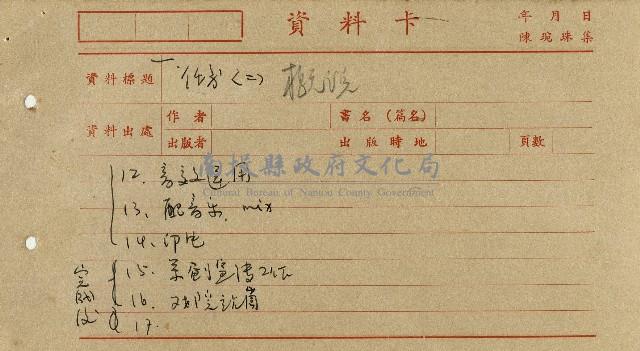 資料卡
年 月 日
陳琬珠集
資料標題 一、任務(二) 概況
資料出處 作者 書名(篇名)
出版者 出版時地 頁數
南投縣政府文化局
Cultural Bureau of Nantou County Government
12. 音效運用
13. 配音樂, mix
14. 印片
完成後 15. 策劃宣傳工作
16.
17.